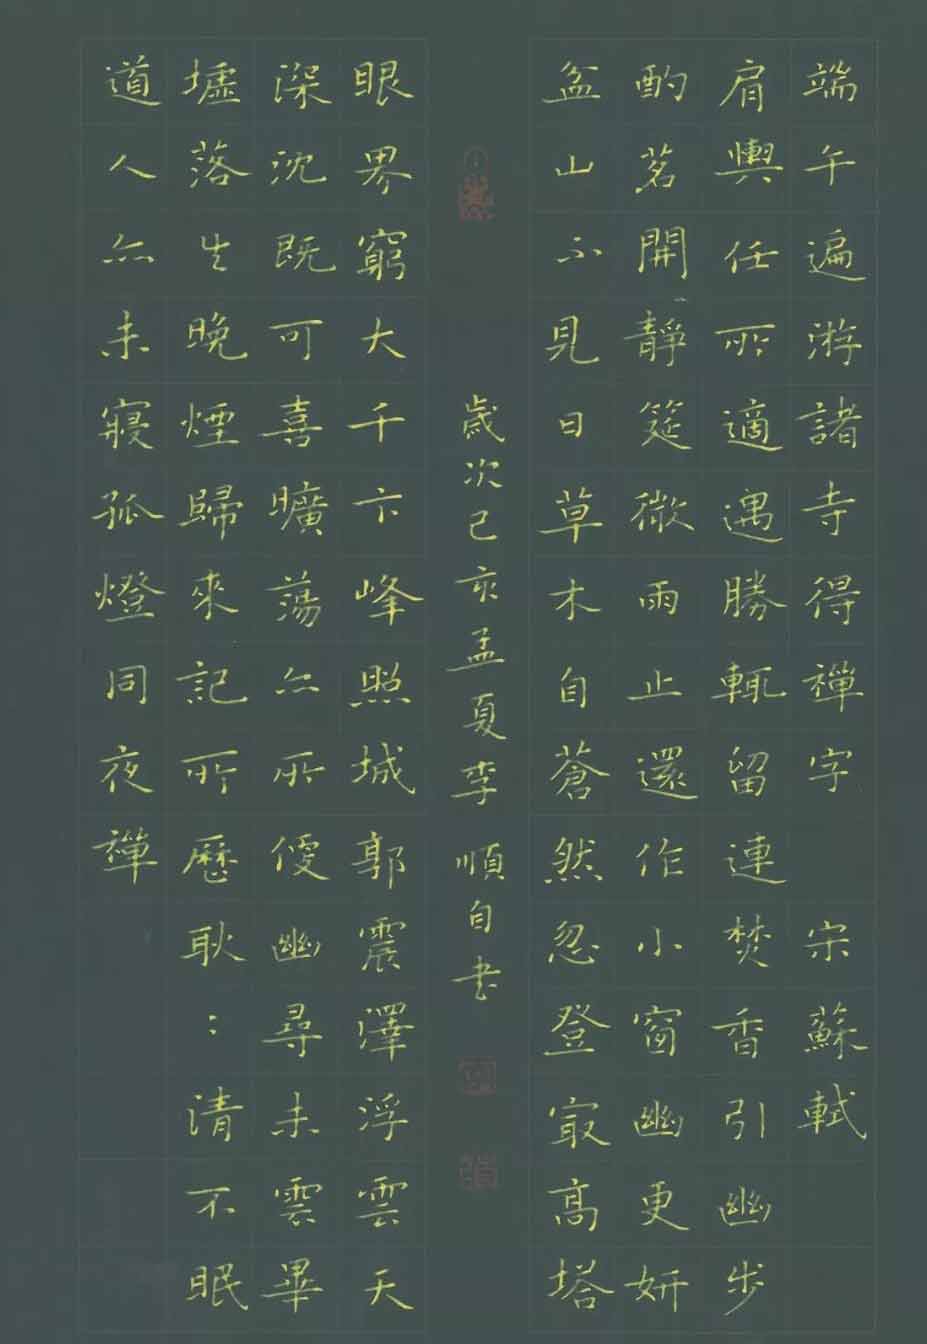 端午遍游諸寺得禪字 宋蘇軾
肩輿任所適遇勝輒留連焚香引幽步
酌茗開靜筵微雨止還作小窗幽更妍
盆山不見日草木自蒼然忽登㝡高塔
眼界窮大千卞峰照城郭震澤浮雲天
深沈既可喜曠蕩亦所便幽尋未雲畢
墟落生晚煙歸來記所歷耿：清不眠
道人亦未寢孤燈同夜禪
歲次己亥孟夏李順自書